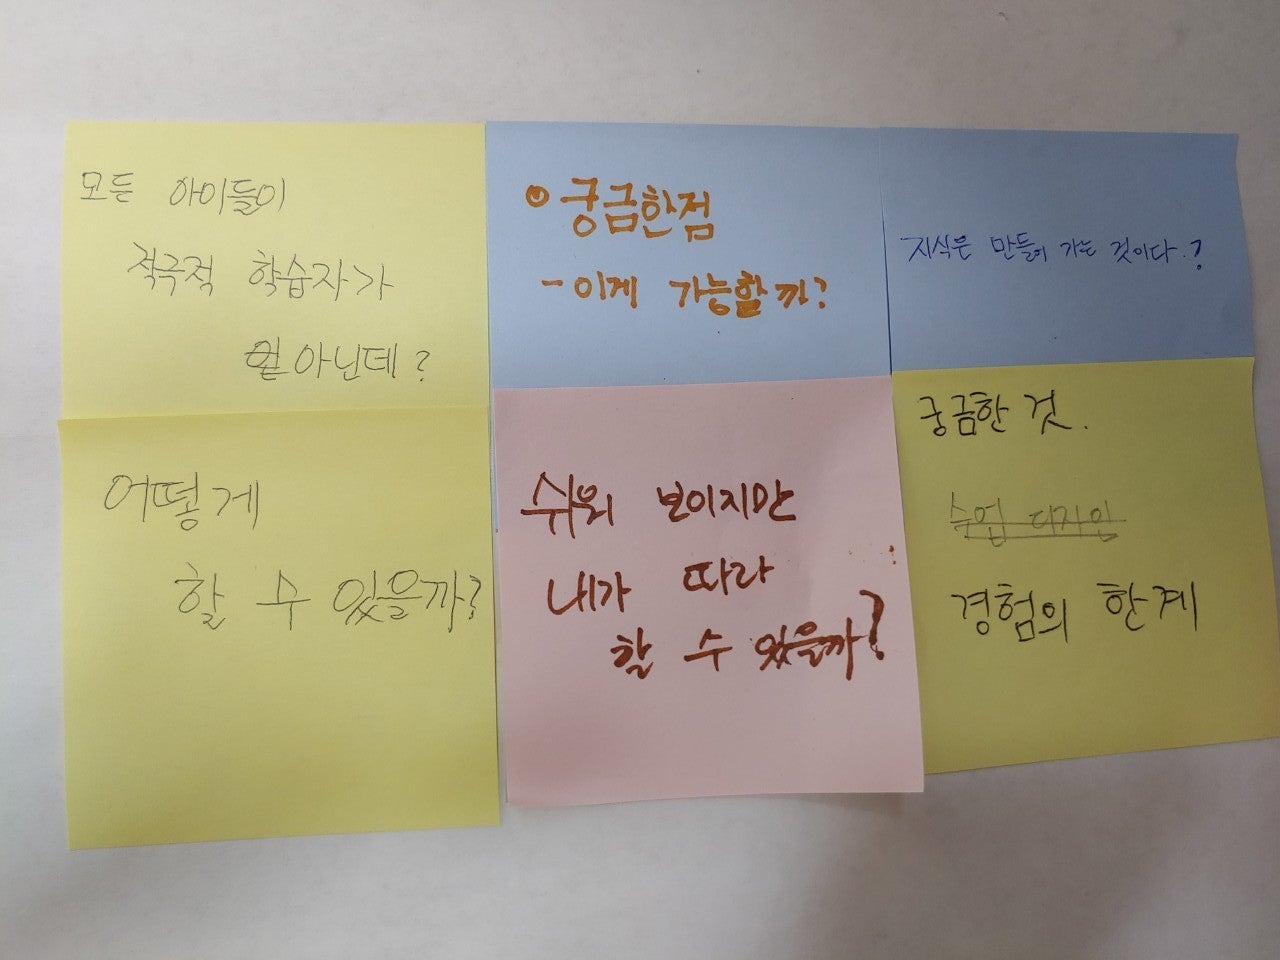 모든 아이들이
적극적 학습자가
아닌데?
◉ 궁금한점
- 이게 가능할까?
지식은 만들어 가는 것이다.?
어떻게
할 수 있을까?
쉬워 보이지만
내가 따라
할 수 있을까?
궁금한 것.
수업 디자인
경험의 한계